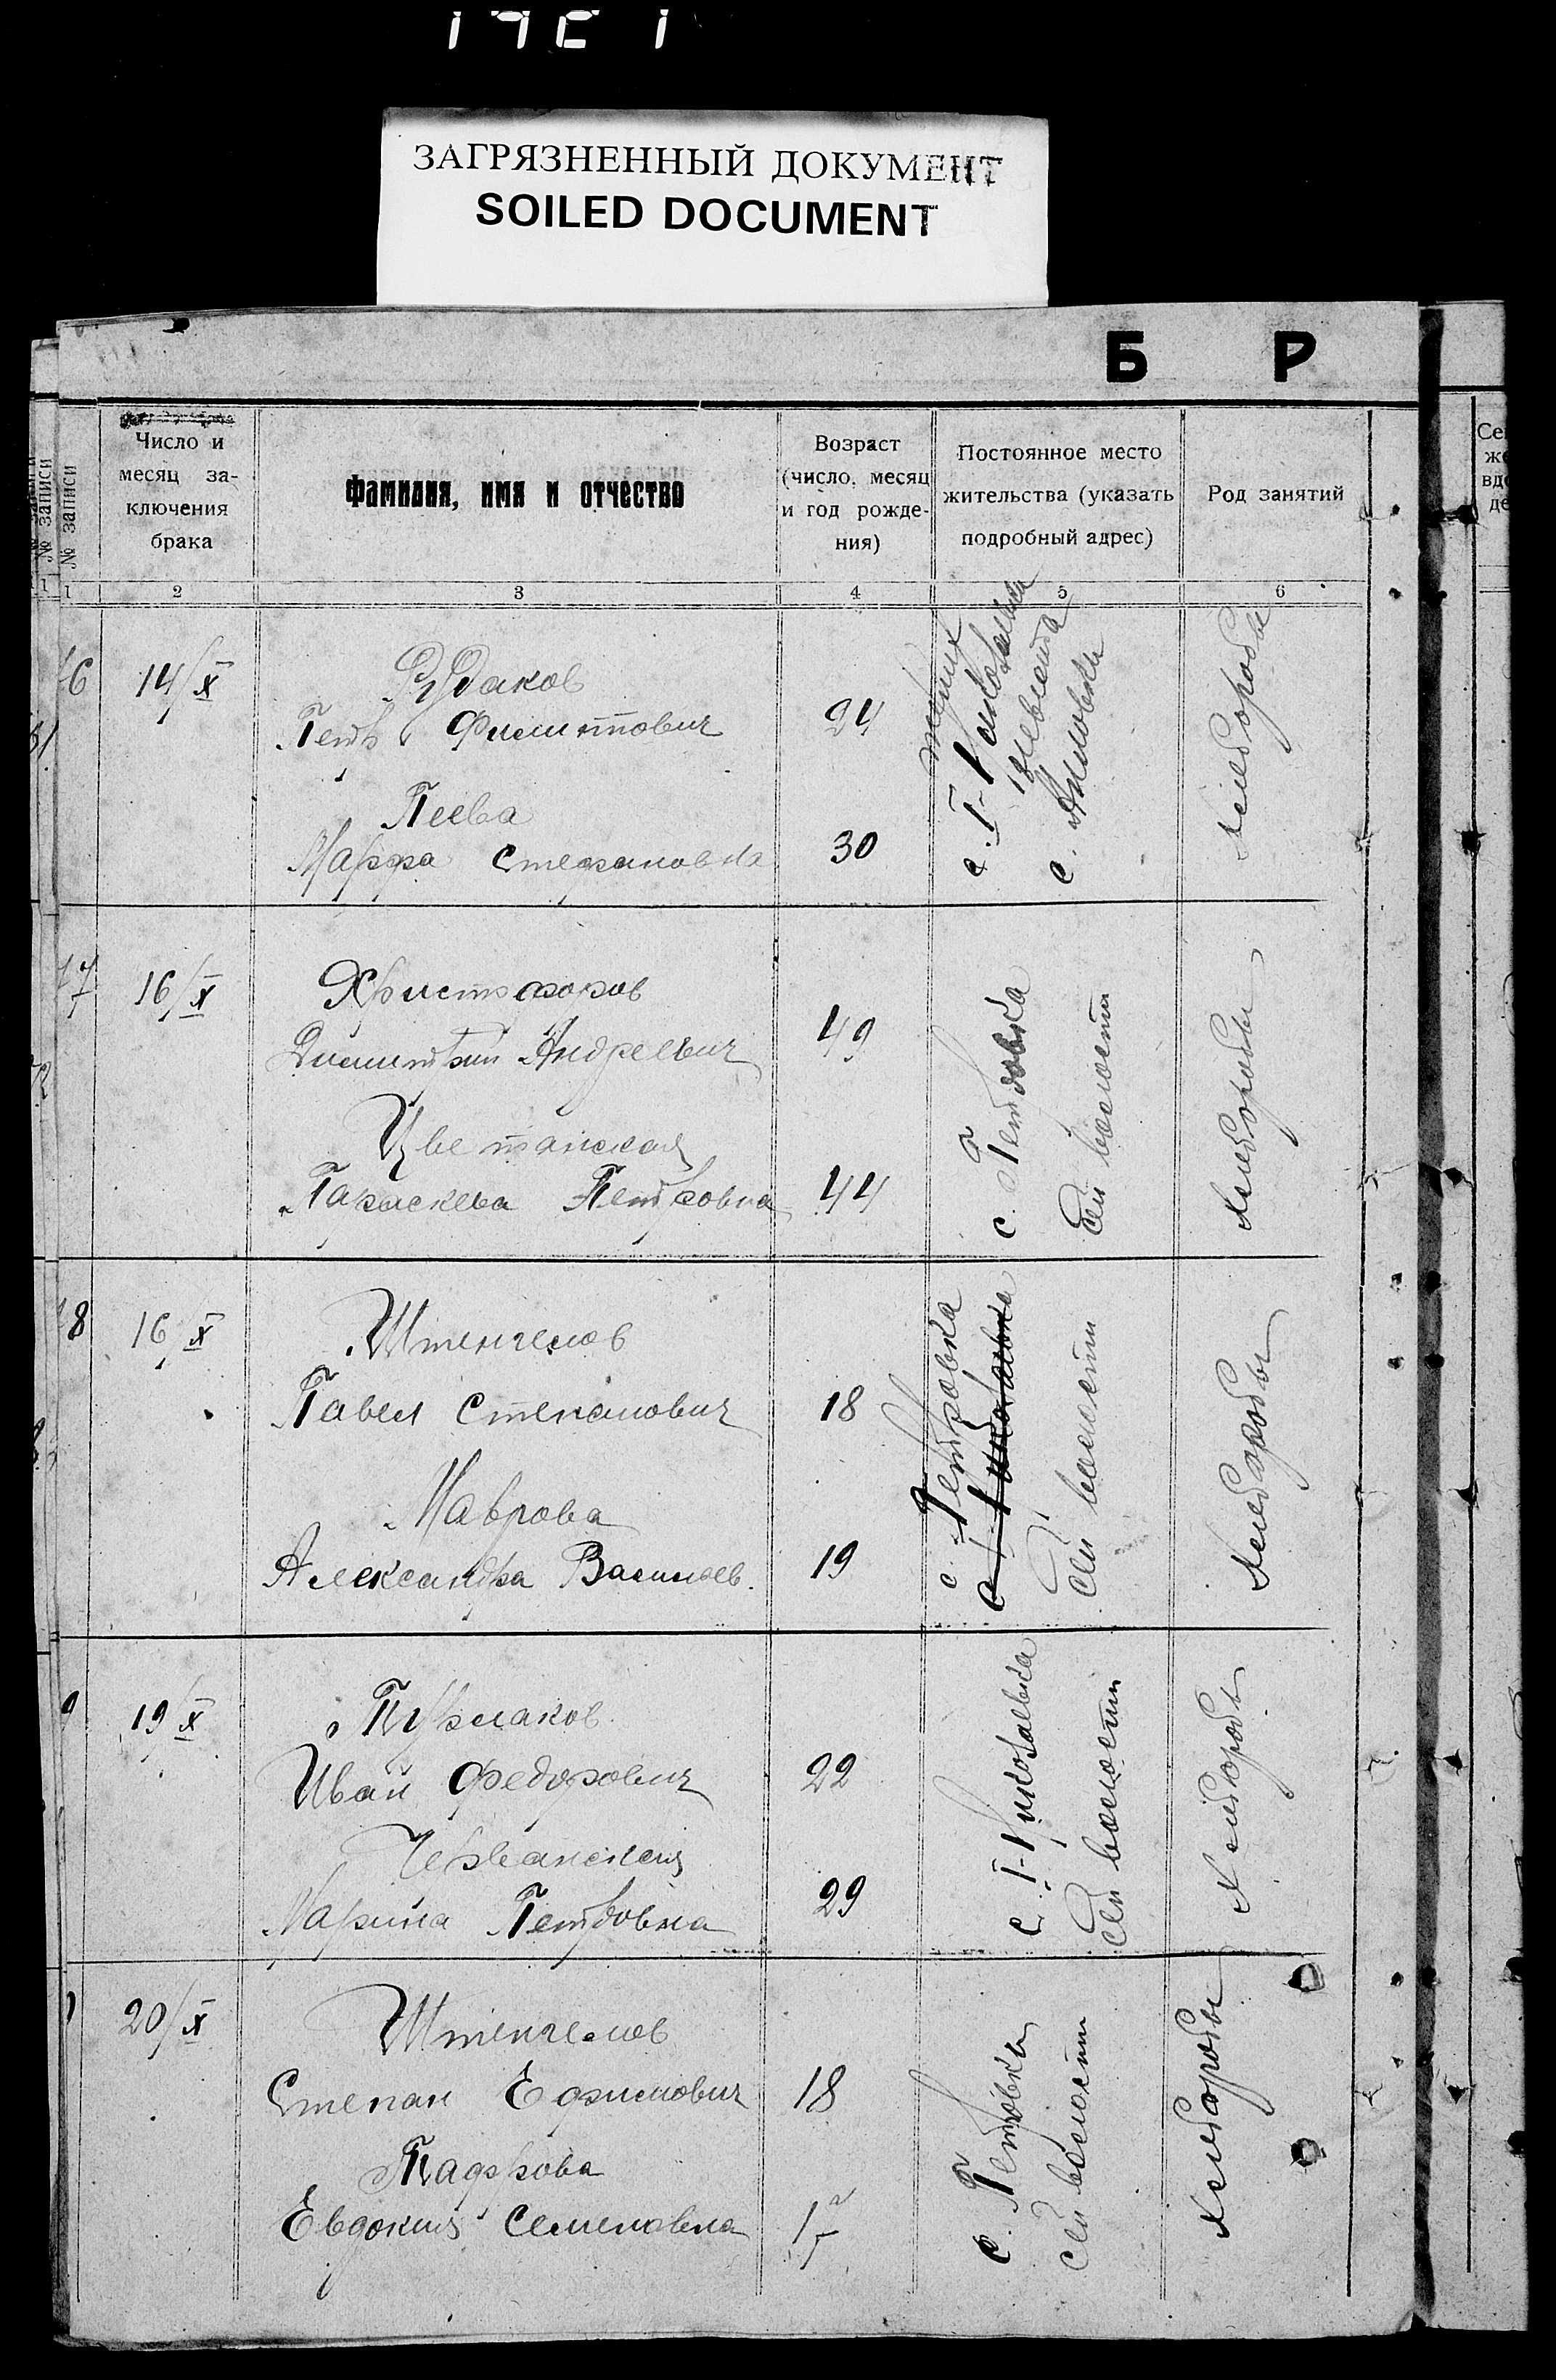 ЗАГРЯЗНЕННЫЙ ДОКУМЕНТ
SOILED DOCUMENT
Б Р
№ записи
Число и
месяц за-
ключения
брака
Фамилия, имя и отчество
Возраст
(число, месяц
и год рожде-
ния)
Постоянное место
жительства (указать
подробный адрес)
Род занятий
1 2 3 4 5 6
6
14/X
Рудаков
Петр Филиппович
24
Пеева
Марфа Стефановна
30
жених
с. I-Николаевка
невеста
с.
хлебороб
7
16/X
Христофоров
Димитрий Андреевич
49
Цветанская
Параскева Петровна
44
с. Петровка
сей волости
хлеборобы
8
16 X
Штенгелов
Павел Степанович
18
Маврова
Александра Васильев.
19
с. Петровка
с I-Николаевка
сей волости
хлеборобы
9
19 X
Пурлаков
Иван Федорович
22
Марина Петровна
29
с. I-Николаевка
сей волости
хлебороб
20/X
Штенгелов
Степан Ефимович
18
Евдокия Семеновна
17
с. Петровка
сей волости
хлеборобы